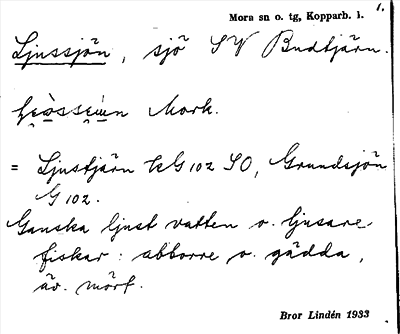 1.
Mora sn o. tg, Kopparb. l.
Ljussjön, sjö SV Budtjärn.
Mork.
= Ljustjärn Ek G 102 SO, Grundsjön
G 102.
Ganska ljust vatten o. ljusare
fiskar: abborre o. gädda,
äv. mört.
Bror Lindén 1933